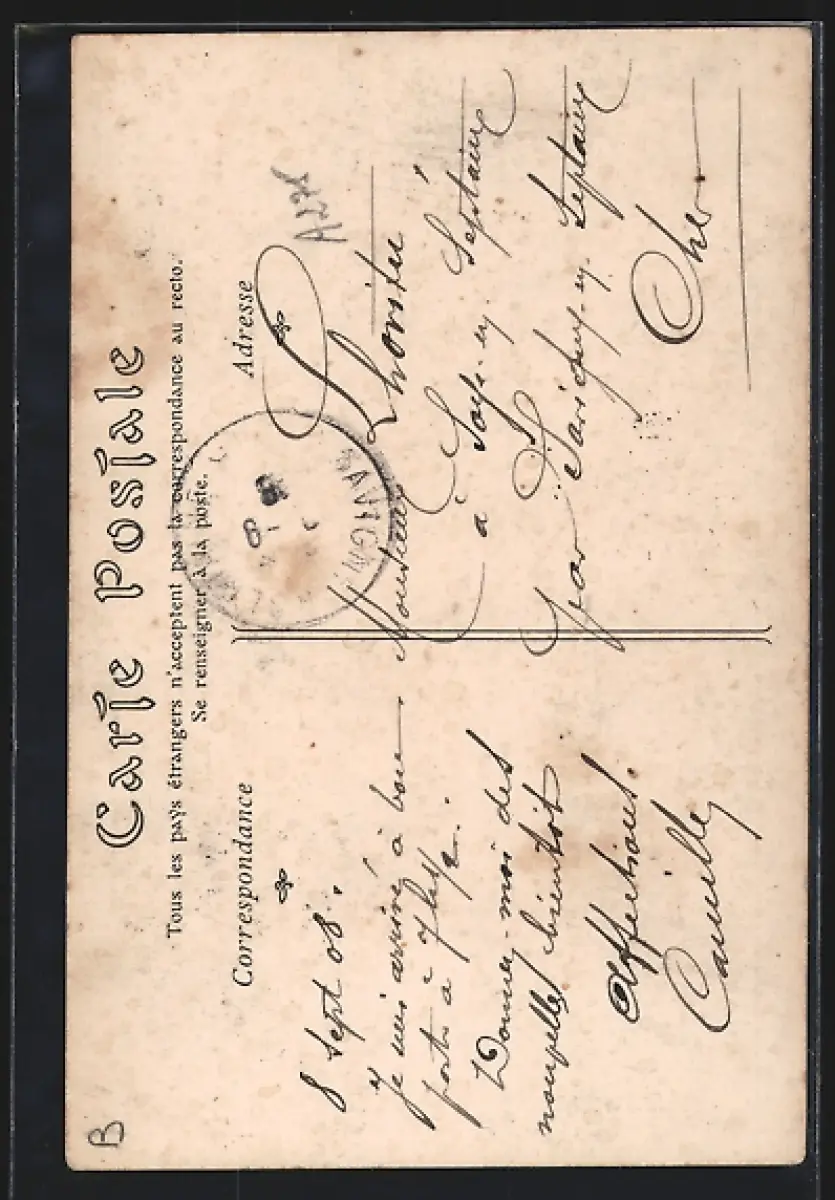 B
Carte Postale
Tous les pays étrangers n'acceptent pas la correspondance au recto.
Se renseigner à la poste.
Correspondance
8 Sept 08.
Je suis arrivé à bon
port à 7h½.
Donner-moi des
nouvelles bientôt
Affections.
Camille
Adresse
A278
Monsieur Lhoritier
à Soye-en-Septaine
par Savigny-en-Septaine
Cher